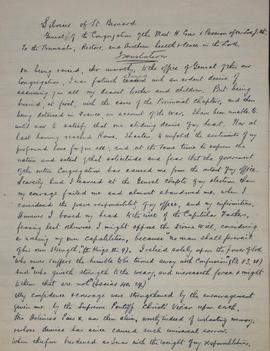 Silverius of St. Bernard
General of the Congregation of the Most H. Cross & Passion of our Lord J. Ch.
To the Provincials, Rectors, and Brethren health & Peace in the Lord.
Translation
On being raised, tho' unworthy, to the office of General of this our
Congregation, I was fraught with an ardent desire of
addressing you all my dearest brother and children. But being
forced, at first, with the cares of the Provincial chapters, and then
being detained in France, on account of the war, I have been unable to
until now to satisfy that one abiding desire of my heart. Now at
last having reached Rome, I hasten to unfold the sentiments of my
profound love for you all; and at the same time to express the
nature and extent of that solicitude and fear that the government
of the entire Congregation has caused me from the outset of my office.
Scarcely had I heard at the General chapter of my election than
my courage failed me and almost abandoned me, when I
considered the grave responsibility of my office, and my imperfections.
However I bowed my head to the will of the Capitular Fathers,
fearing lest otherwise I might oppose the Divine will, considering
as nothing my own capabilities, because "no man shall prevail
of his own strength", I relied solely upon the power of God
who never suffers the humble to be turned away with confusion
and "who giveth strength to the weary, and increaseth force & might
to them that are not" (Isaias 40, 29)
My confidence & courage was strengthened by the encouragement
given me by the Supreme Pontiff, Christ's Vicar upon earth,
His Holiness Pius X. was then alive, worthy indeed of undoubting memory,
whose demise has since caused such universal sorrow,
who when burdened as I was with the weight of my responsibilities,